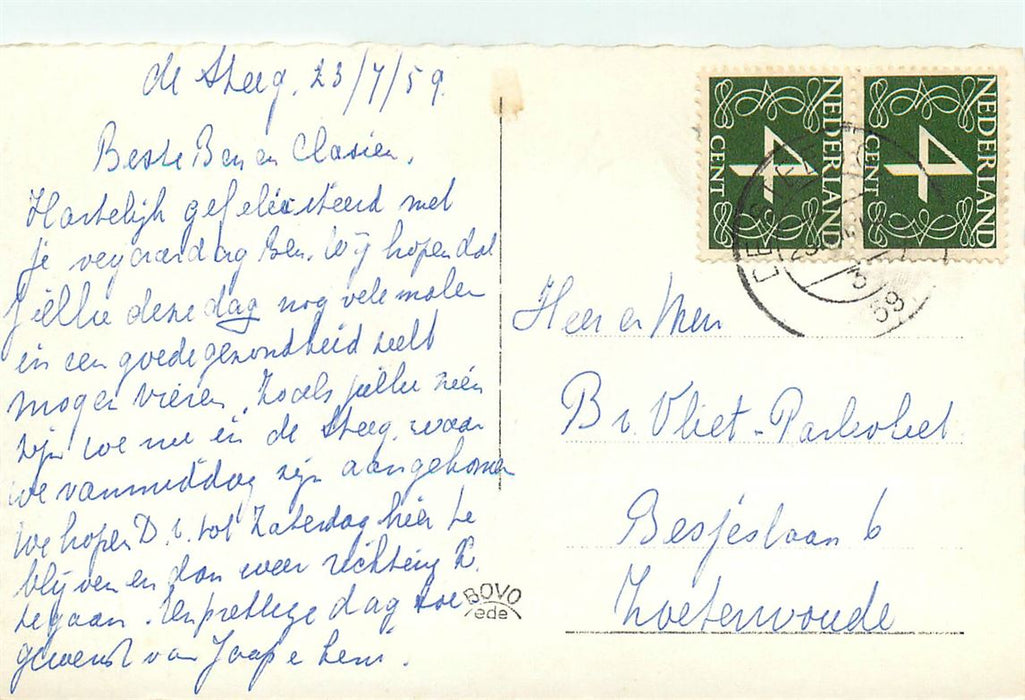 de Steeg, 23/7/59.
Beste Ben en Clasien,
Hartelijk gefeliciteerd met
je verjaardag Ben. Wij hopen dat
jellie deze dag nog vele malen
in een goede gezondheid zelt
mogen vieren. Zoals jellie zien
zijn we nu in de Steeg, waar
we vanmiddag zijn aangekomen
We hopen D.v. tot Zaterdag hier te
blijven en dan weer richting
te gaan. Een prettige dag toe
gewenst van Jaap e
Heer en Mevr
B v. Vliet-
Besjeslaan 6
Zoeterwoude
NEDERLAND
4
CENT
NEDERLAND
4
CENT
59
BOVO
ede